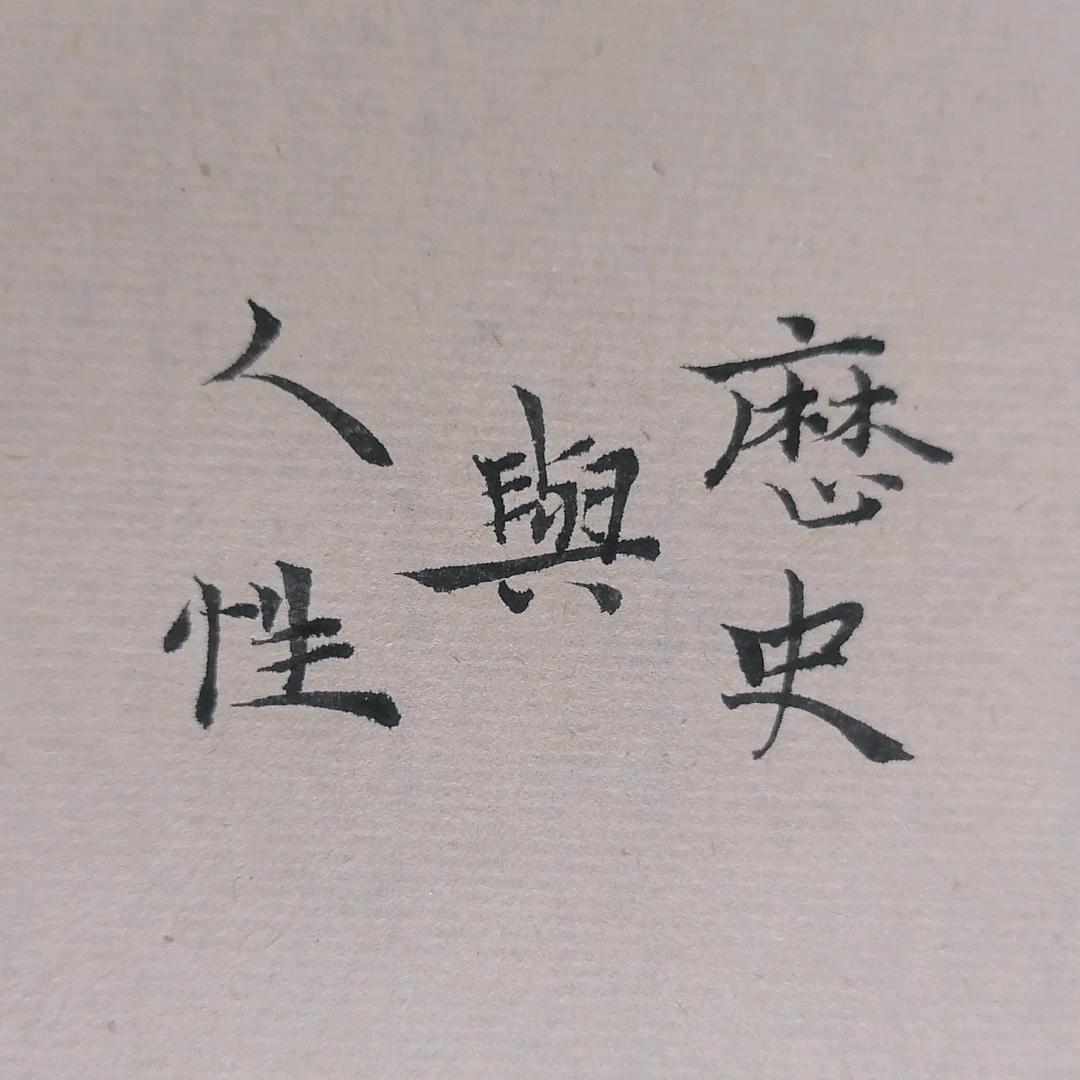 歷史
與
人性